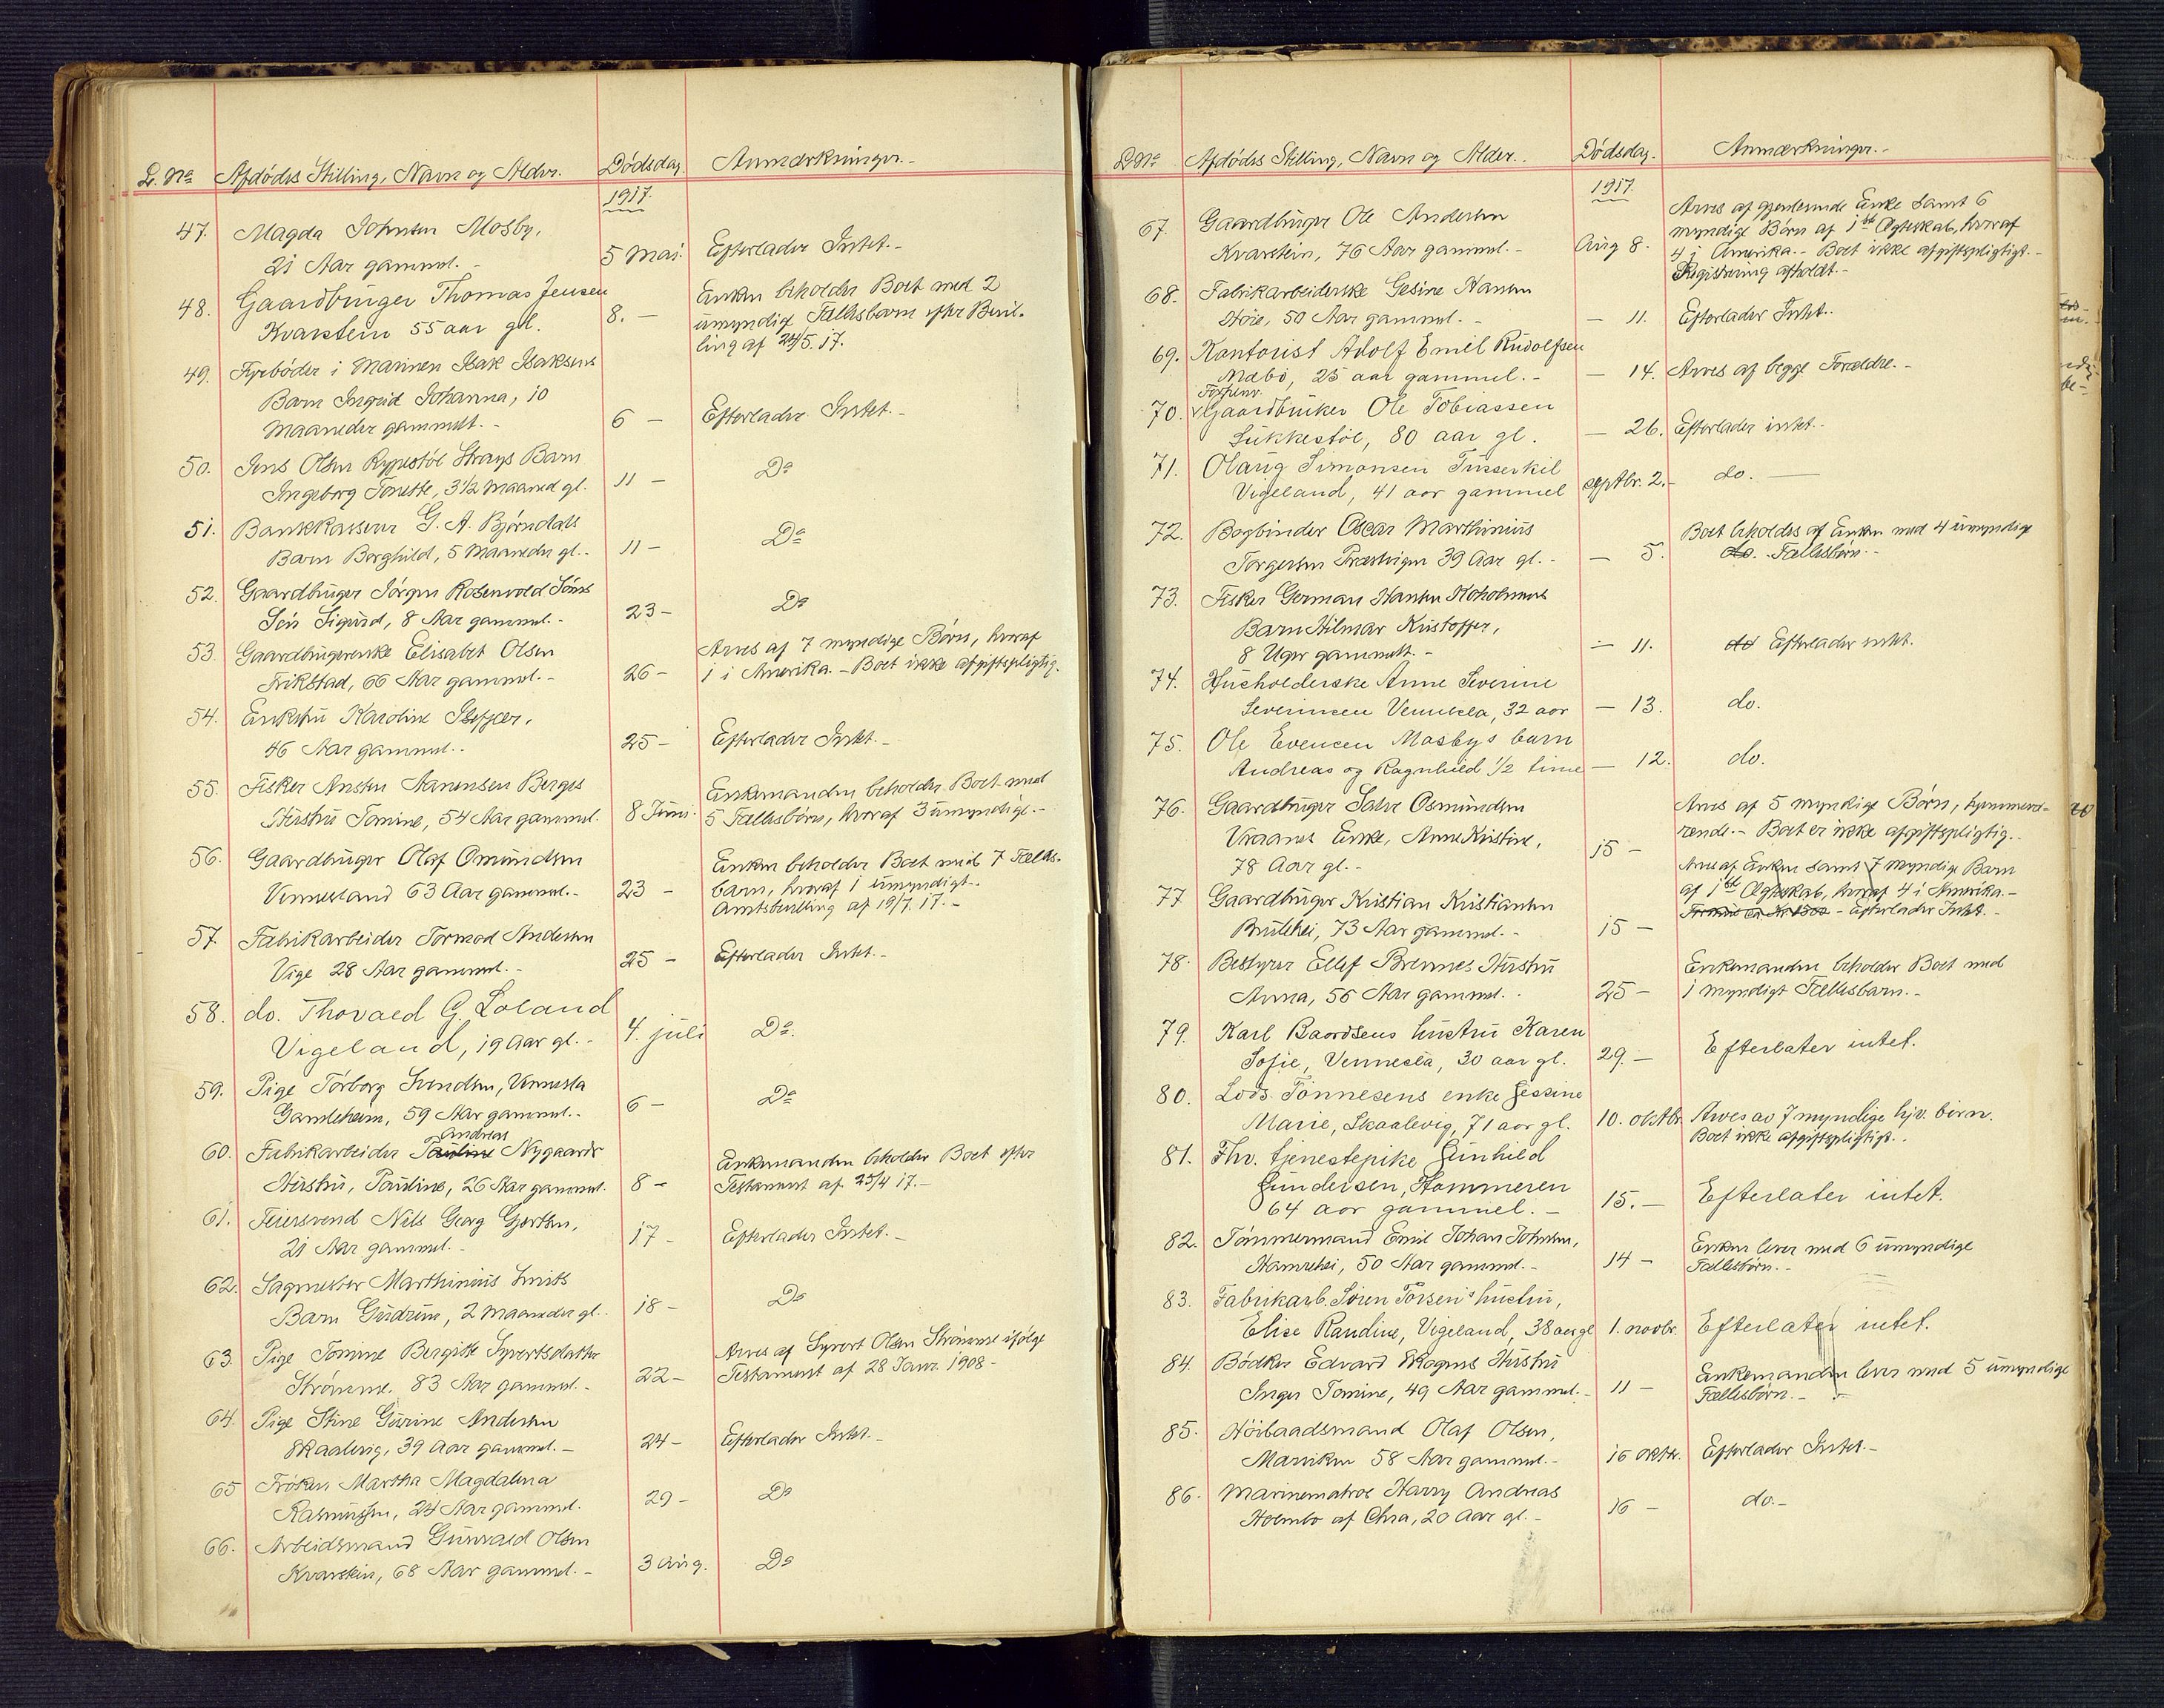 L. No Afdødes Stilling, Navn og Alder. Dødsdag. Anmærkninger.-
1917.
47. Magda Johnsen Mosby,
21 Aar gammel.- 5 Mai. Efterlader Intet.-
48. Gaardbruger Thomas Jensen
Kvarstein 55 aar gl. 8. -
Enken beholder Boet med 2
umyndige Fællesbarn efter Bevil-
ling af 24/5. 17.
49. Fyrbøder i Marinen Isak Isaksens
Barn Ingrid Johanna, 10
Maaneder gammelt.- 6 - Efterlader Intet.-
50. Jens Olsen Rypestøl Strays Barn
Ingeborg Tonette, 3 1/2 Maaned gl. 11 - Do
51. Bankkasserer G. A. Bjørndals
Barn Borghild, 5 Maaneder gl.- 11 - Do
52. Gaardbruger Jørgen Rosenvold
Søn Sigurd, 8 Aar gammel.- 23 - Do
53. Gaardbrugerenke Elisabet Olsen
Frikstad, 66 Aar gammel.- 26 -
Arves af 7 myndige Børn, hvoraf
1 i Amerika.- Boet ikke afgiftspligtig.
54. Enkefru Karoline
46 Aar gammel.- 25 - Efterlader Intet.-
55. Fisker Ansten Aanensen Berges
Hustru Tomine, 54 Aar gammel. 8 Juni.
Enkemanden beholder Boet med
5 Fællesbørn, hvoraf 3 umyndige.-
56. Gaardbruger Olaf Omundsen
Vennesland 63 Aar gammel.- 23 -
Enken beholder Boet med 7 Fælles-
barn, hvoraf 1 umyndigt.-
Amtsbevilling af 19/7. 17.-
57. Fabrikarbeider Tormod Andersen
Vige 28 Aar gammel.- 25 - Efterlader Intet.-
58. do. Thorvald G. Loland
Vigeland, 19 Aar gl.- 4. juli Do.
59. Pige Torborg Svendsen, Vennesla
Gamleheim, 59 Aar gammel.- 6 - Do
Andreas
60. Fabrikarbeider Pauline Nygaards
Hustru, Pauline, 26 Aar gammel. 8 -
Enkemanden beholder Boet efter
Testament af 25/4 17.-
61. Feiersvend Nils Georg Gjertsen,
21 Aar gammel.- 17 - Efterlader Intet.-
62. Sagmester Marthinius Smits
Barn Gudrun, 2 Maaneder gl.- 18 - Do
63. Pige Tomine Bergitte Syvertsdatter
Strømme. 83 Aar gammel.- 22 -
Arves af Syvert Olsen Strømme ifølge
Testament af 28 Janr. 1908-
64. Pige Stine Gurine Andersen
Skaalevig, 39 Aar gammel.- 24 - Efterlader Intet.-
65 Frøken Martha Magdalena
Rasmussen, 24 Aar gammel. 29 - Do
66. Arbeidsmand Gunvald Olsen
Kvarstein, 68 Aar gammel.- 3 Aug. Do
L. No Afdødes Stilling, Navn og Alder. Dødsdag. Anmærkninger.-
1917.
67. Gaardbruger Ole Andersen
Kvarstein, 76 Aar gammel.- Aug 8.
Arves af gjenlevende Enke samt 6
myndige Børn af 1ste Ægteskab, hvoraf
4 i Amerika.- Boet ikke afgiftspligtigt.-
Registrering afholdt.-
68. Fabrikarbeiderske Gesine Hansen
Høie, 50 Aar gammel.- - 11. Efterlader Intet.-
69. Kontorist Adolf Emil Rudolfsen
Mæbø, 25 aar gammel.- - 14. Arves af begge Forældre.-
Forhenv.
70. Gaardbruker Ole Tobiassen
Lukkestøl, 80 aar gl. - 26. Efterlader intet.-
71. Olaug Simonsen Tusserkil
Vigeland, 41 aar gammel septbr. 2.- do.
72. Bogbinder Oscar Marthinius
Torgersen Træsvigen 39 Aar gl.- - 5.
Boet beholdes af Enken med 4 umyndige
do. Fællesbørn.-
73. Fisker German Hansen Stoholmens
Barn Hilmar Kristoffer,
8 Uger gammelt.- - 11. do Efterlader intet.
74. Husholderske Anne Severine
Severinsen Vennesla, 32 aar - 13. do.
75. Ole Evensen Mosbys barn
Andreas og Ragnhild 1/2 time - 12. do.
76. Gaardbruger Salve Osmundsen
Vraanes Enke, Anne Kristine,
78 Aar gl.- 15 -
Arves af 5 myndige Børn, hjemmevæ-
rende.- Boet er ikke afgiftspligtig.-
77 Gaardbruger Kristian Kristiansen
Bruthei, 73 Aar gammel.- 15 -
Arves af Enken samt 7 myndige Barn
af 1ste Ægteskab, hvoraf 4 i Amerika.-
- Efterlader Intet.-
78. Bestyrer Ellef Brennes Hustru
Anna, 56 Aar gammel.- 25 -
Enkemanden beholder Boet med
1 myndigt Fællesbarn.-
79. Karl Baardsens hustru Karen
Sofie, Vennesla, 30 aar gl. 29.- Efterlater intet.
80. Lods. Tønnesens enke Jessine
Marie, Skaalevig, 71 aar gl. 10. oktbr. Arves av 7 myndige hjv. børn.
Boet ikke afgiftspligtigt.-
81. Fhv. tjenestepike Gunhild
Gundersen, Hommeren
64 aar gammel.- 15.- Efterlater intet.
82. Tømmermand Emil Johan Johnsen,
Hamrehei, 50 Aar gammel.- 14 -
Enken lever med 6 umyndige
Fællesbørn.-
83. Fabrikarb. Søren Torsen's hustru,
Elise Randine, Vigeland, 38 aar gl 1. novbr. Efterlater intet.
84. Bødker Edvard Skagens Hustru
Inger Tomine, 49 Aar gammel.- 11 -
Enkemanden lever med 5 umyndige
Fællesbørn.-
85. Høibaadsmand Olaf Olsen,
Marviken 58 Aar gammel.- 15 Oktbr. Efterlader Intet.-
86. Marinematros Harry Andreas
Holmbo af Chra, 20 Aar gl.- 16 - do.-